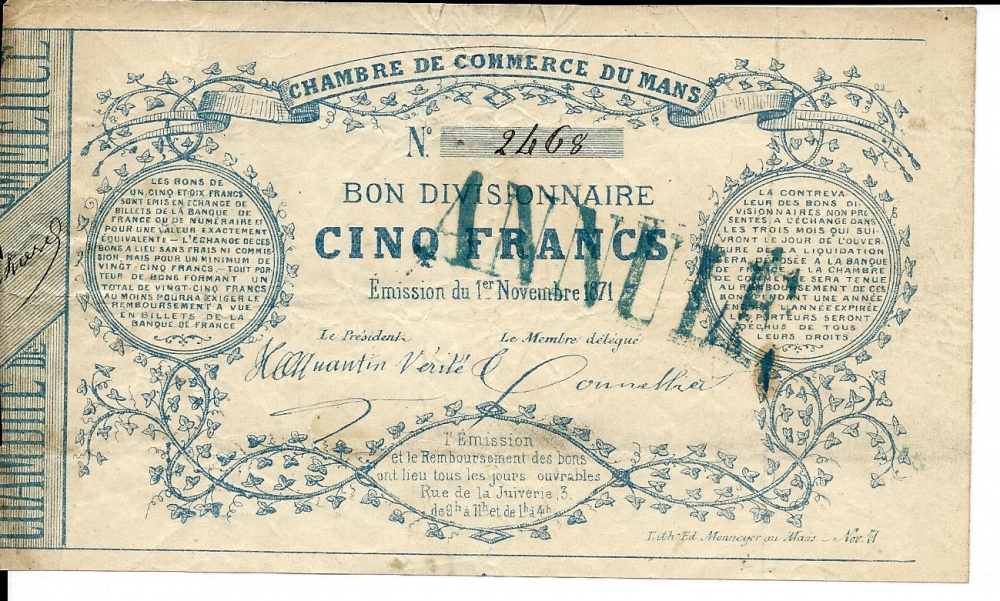 CHAMBRE DE COMMERCE DU MANS
N° 2468
BON DIVISIONNAIRE
CINQ FRANCS
Émission du 1er Novembre 1871
ANNULÉ
LES BONS DE
UN, CINQ ET DIX FRANCS
SONT EMIS EN ECHANGE DE
BILLETS DE LA BANQUE DE
FRANCE OU DE NUMÉRAIRE ET
POUR UNE VALEUR EXACTEMENT
ÉQUIVALENTE – L'ÉCHANGE DE CES
BONS A LIEU SANS FRAIS NI COMMIS
SION, MAIS POUR UN MINIMUM DE
VINGT CINQ FRANCS – TOUT POR
TEUR DE BONS FORMANT UN
TOTAL DE VINGT-CINQ FRANCS
AU MOINS POURRA EXIGER LE
REMBOURSEMENT A VUE
EN BILLETS DE LA
BANQUE DE FRANCE
LA CONTREVA
LEUR DES BONS DI
VISIONNAIRES NON PRÉ
SENTÉS A L'ÉCHANGE DANS
LES TROIS MOIS QUI SUI
VRONT LE JOUR DE L'OUVER
TURE DE LA LIQUIDATION
SERA DÉPOSÉE A LA BANQUE
DE FRANCE – LA CHAMBRE
DE COMMERCE SERA TENUE
AU REMBOURSEMENT DE CES
BONS PENDANT UNE ANNÉE
L'ANNÉE EXPIRÉE
LES PORTEURS SERONT
DÉCHUS DE TOUS
LEURS DROITS
Le Président
Le Membre délégué
Quantin Vérité
L'Émission
et le Remboursement des bons
ont lieu tous les jours ouvrables
Rue de la Juiverie, 3.
de 9h à 11h et de 1h à 4h
Lith. Ed. Monnoyer au Mans – Nov. 71
CHAMBRE DE COMMERCE